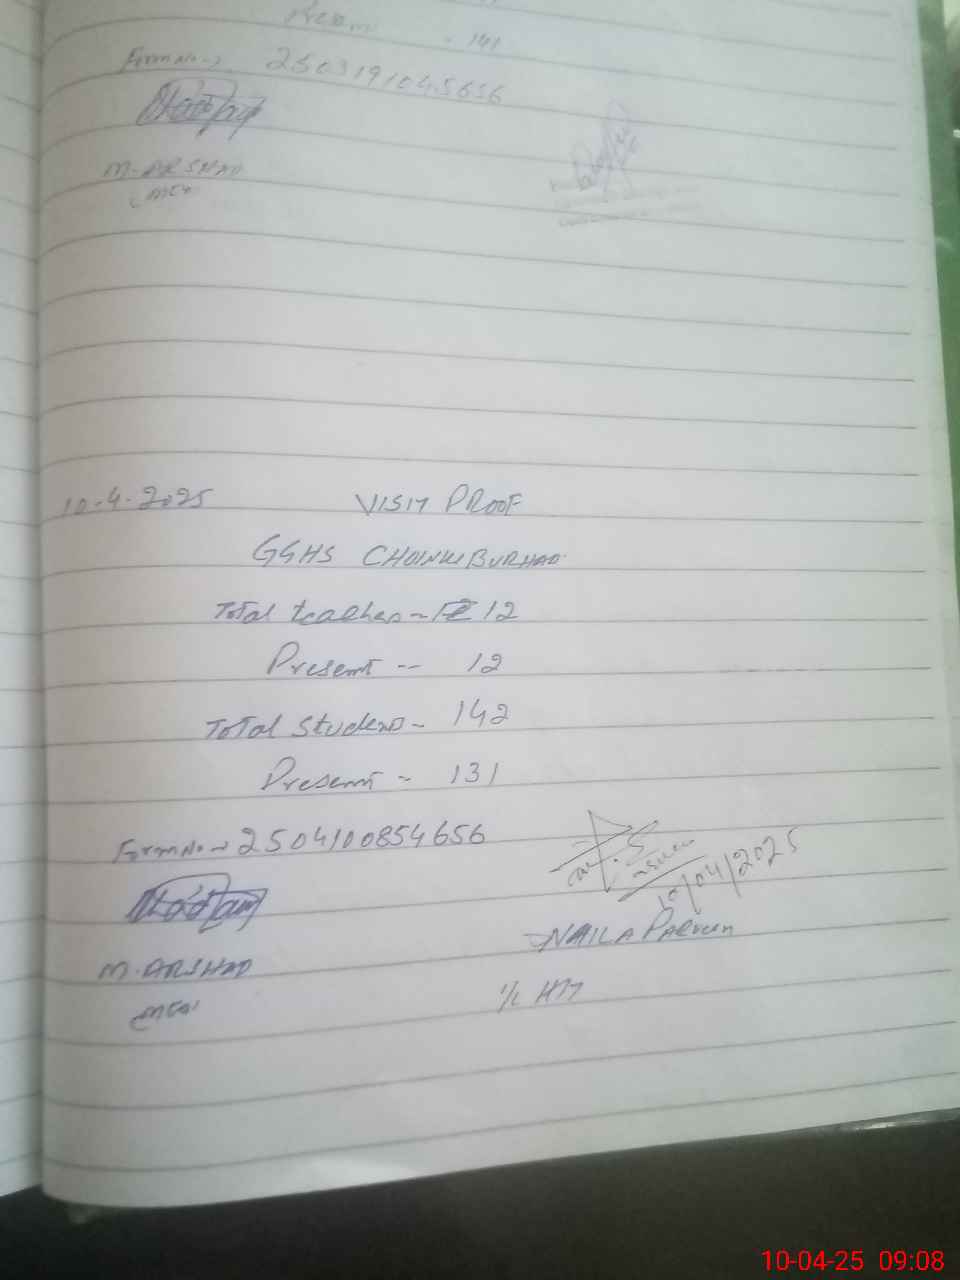 Present
- 141
Form No → 2503191045656
M. ARSHAD
MEA
10-4-2025 VISIT PROOF
GGHS CHOINKI BURHAD
Total teacher - 12
Present -- 12
Total Student - 142
Present - 131
Form No → 2504100854656
10/04/2025
NAILA Parveen
M. ARSHAD
I/C HM
MEA
10-04-25 09:08